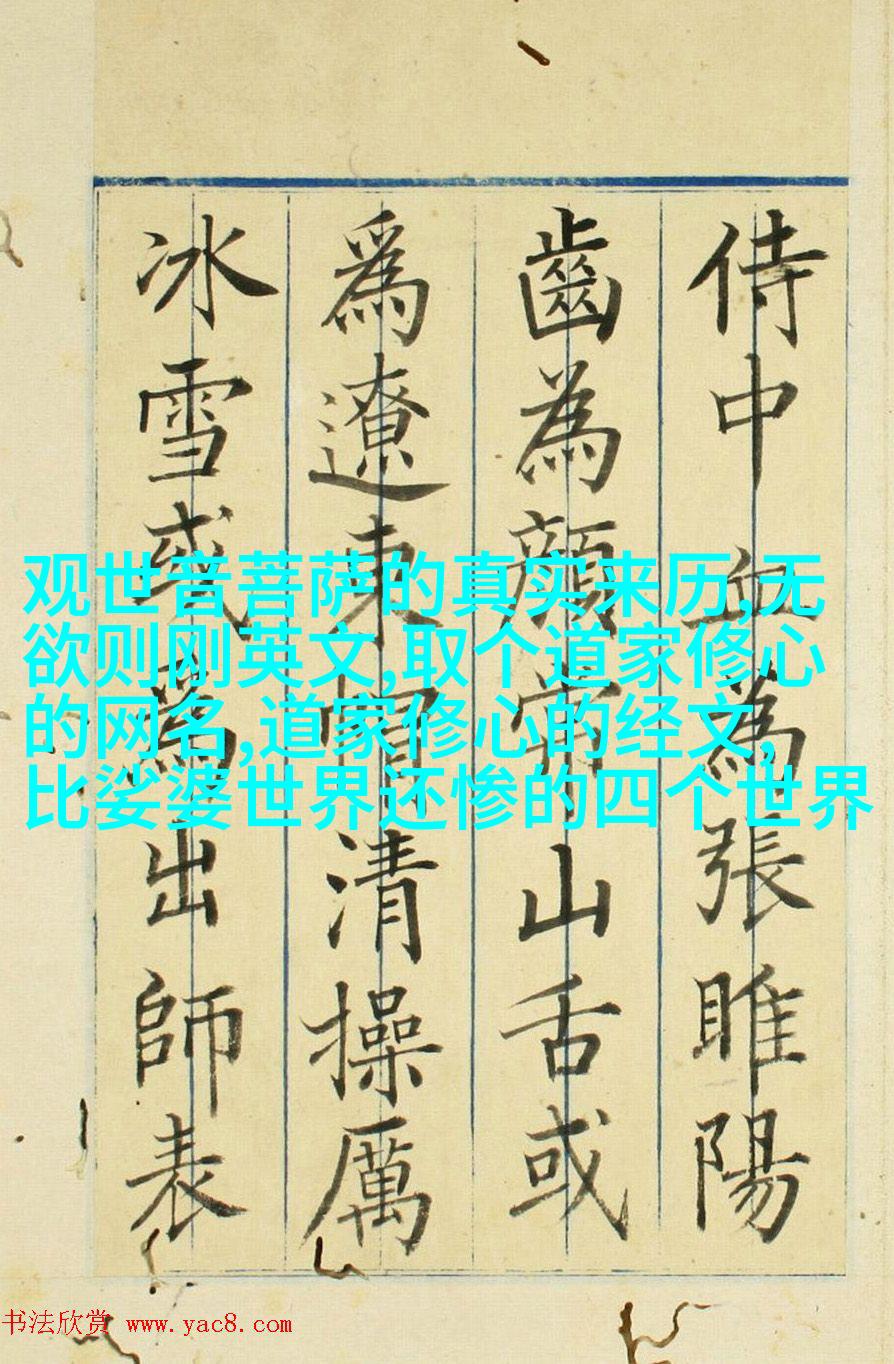 侍中血為張睢陽
齒為顏常山舌或
爲遼東帽清操厲
冰雪或爲出師表
观世音菩萨的真实来历,无
欲则刚英文,取个道家修心
的网名,道家修心的经文,
比娑婆世界还惨的四个世界
书法欣赏 www.yac8.com